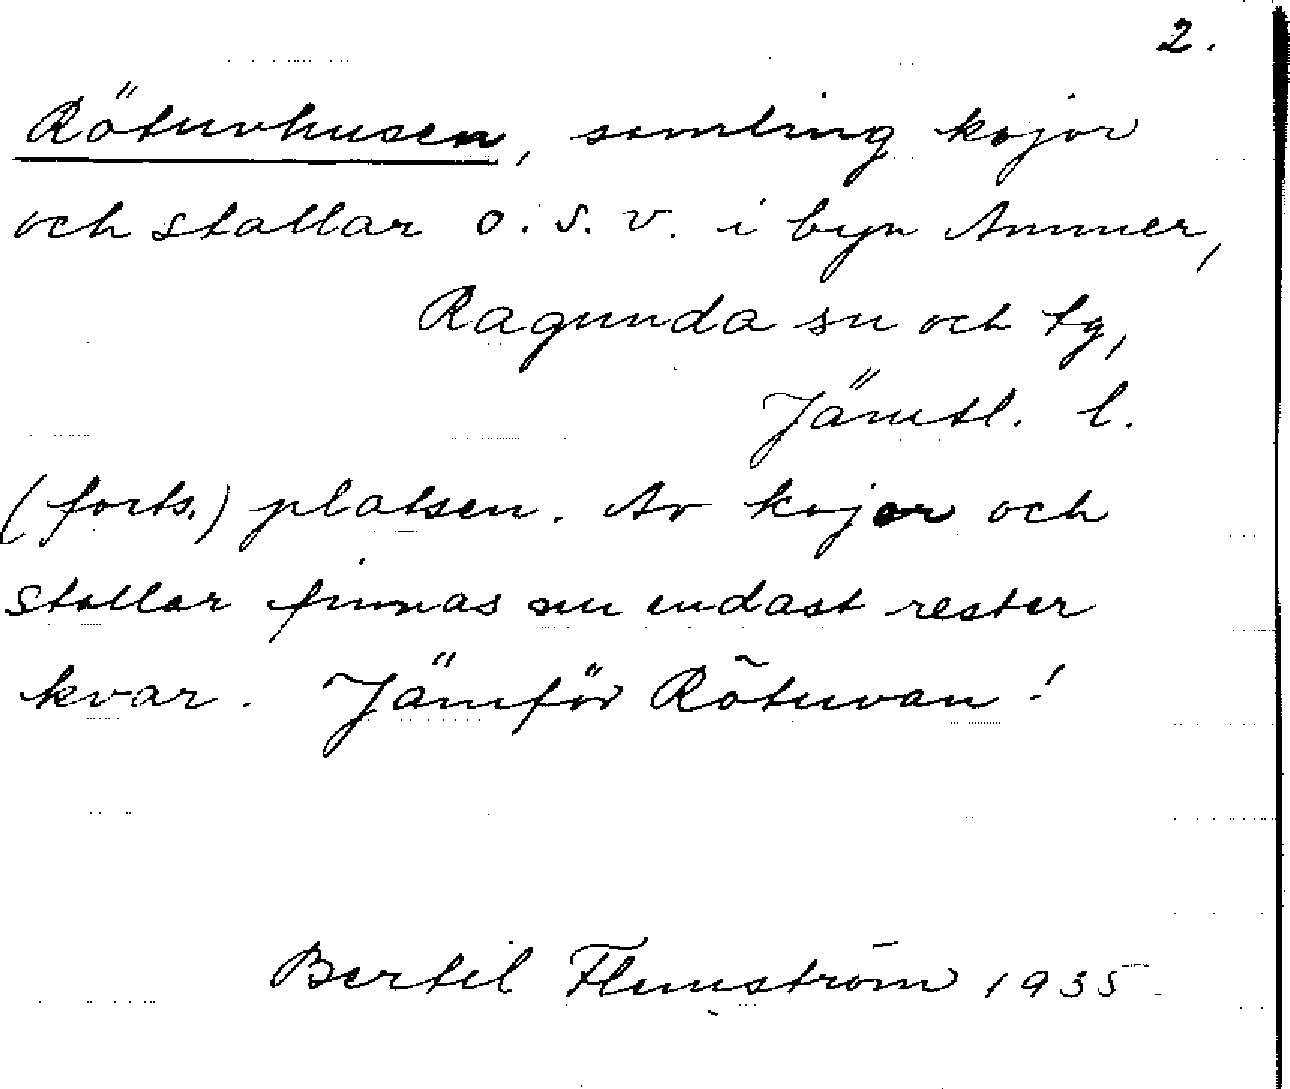 2.
Rötuvhusen, samling kojor
och stallar o. s. v. i byn Ammer,
Ragunda sn och tg,
Jämtl. l.
(forts.) platsen. Av kojor och
stallar finnas nu endast rester
kvar. Jämför Rötuvan!
Bertil Flemström 1935